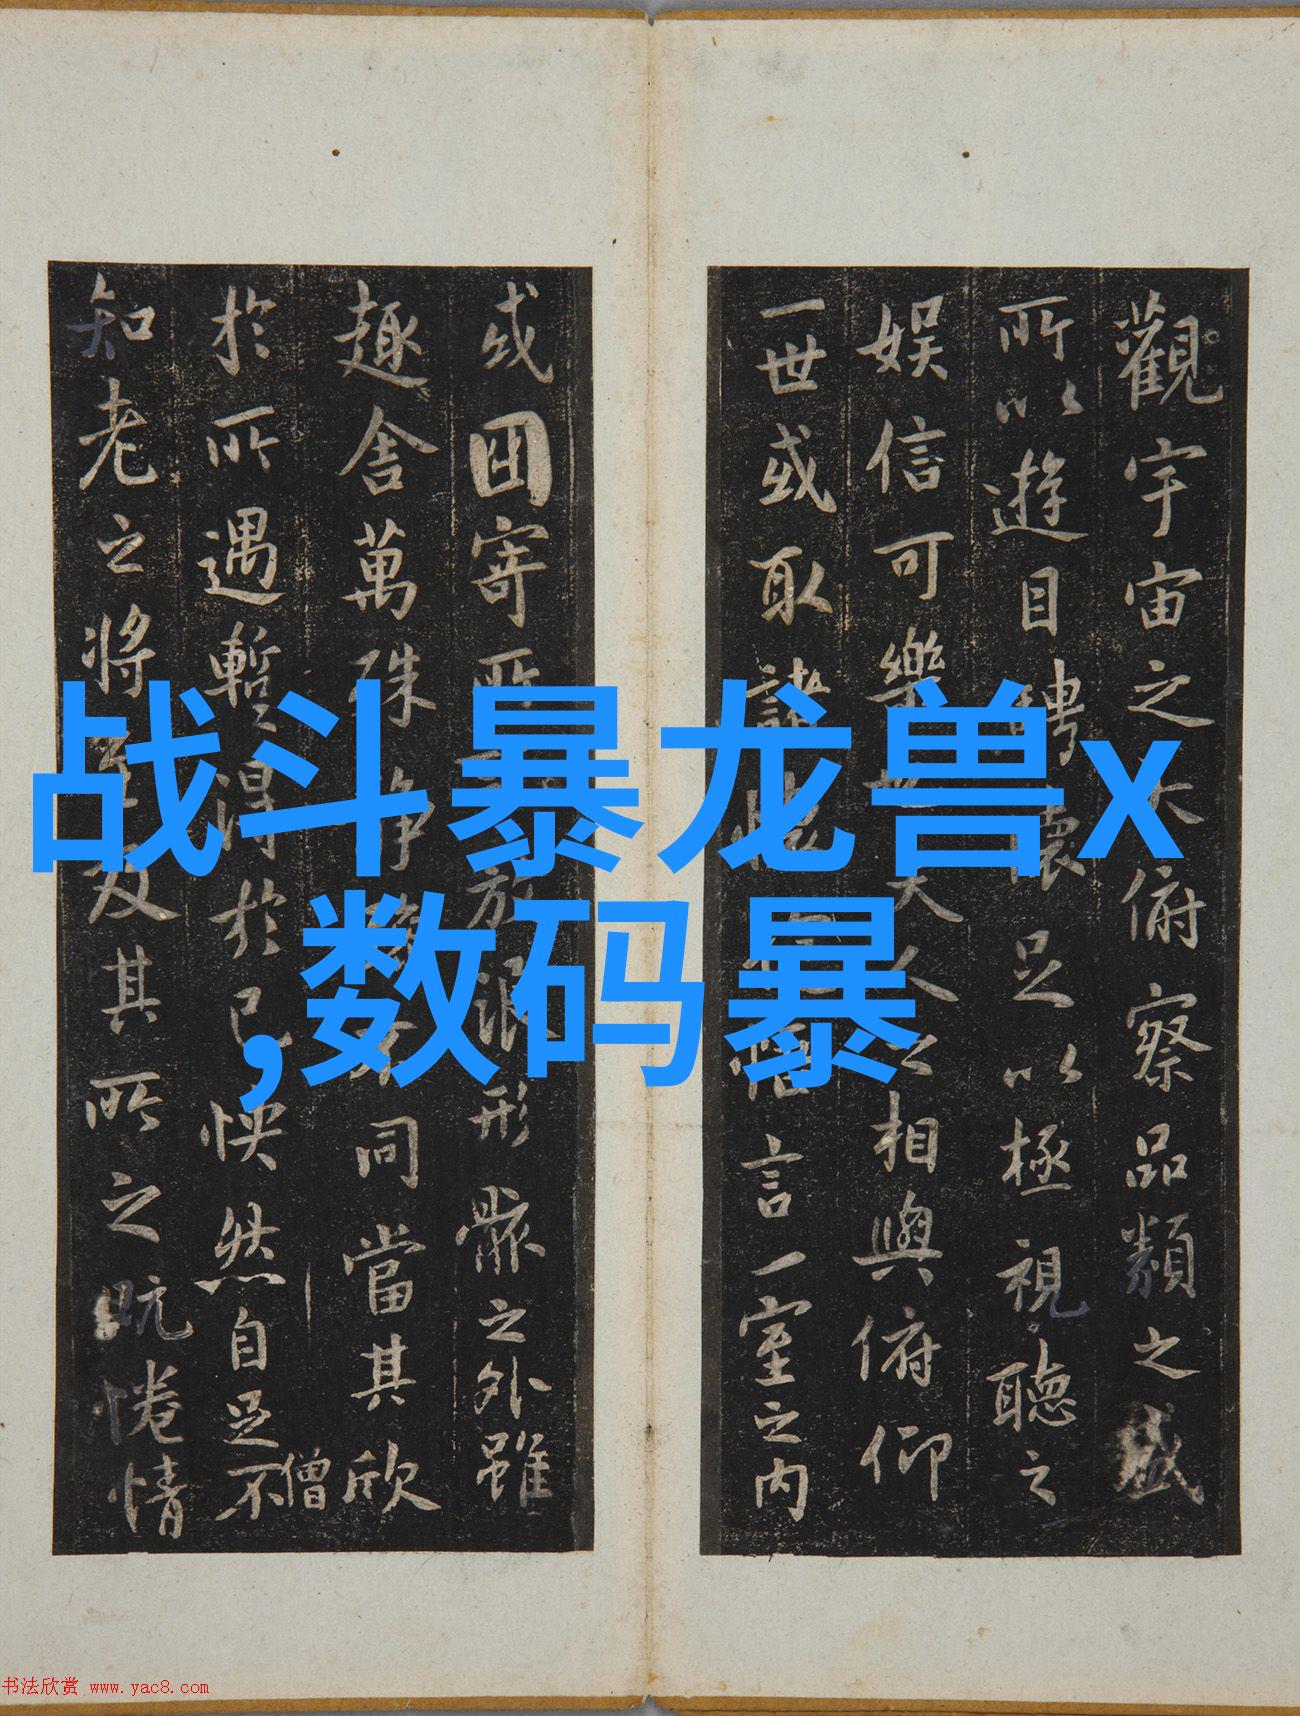 觀宇宙之大俯察品類之盛
所以遊目騁懷足以極視聽之
娛信可樂夫人之相與俯仰
一世或取諸懷悟言一室之内
或因寄所放浪形骸之外雖
趣舍萬殊靜不同當其欣
於所遇暫得於己怏然自足不
僧
知老之將至及其所之既惓情
战斗暴龙兽x
,数码暴
书法欣赏 www.yac8.com